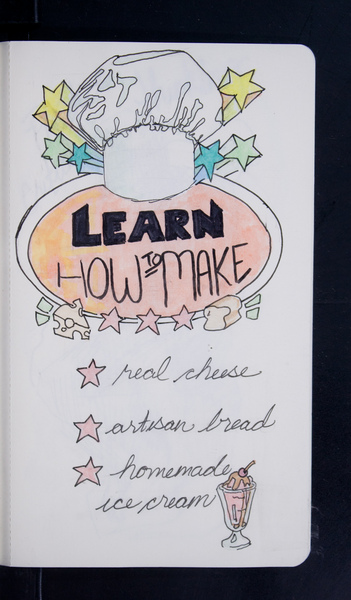 LEARN
HOW TO MAKE
real cheese
artisan bread
homemade
ice cream